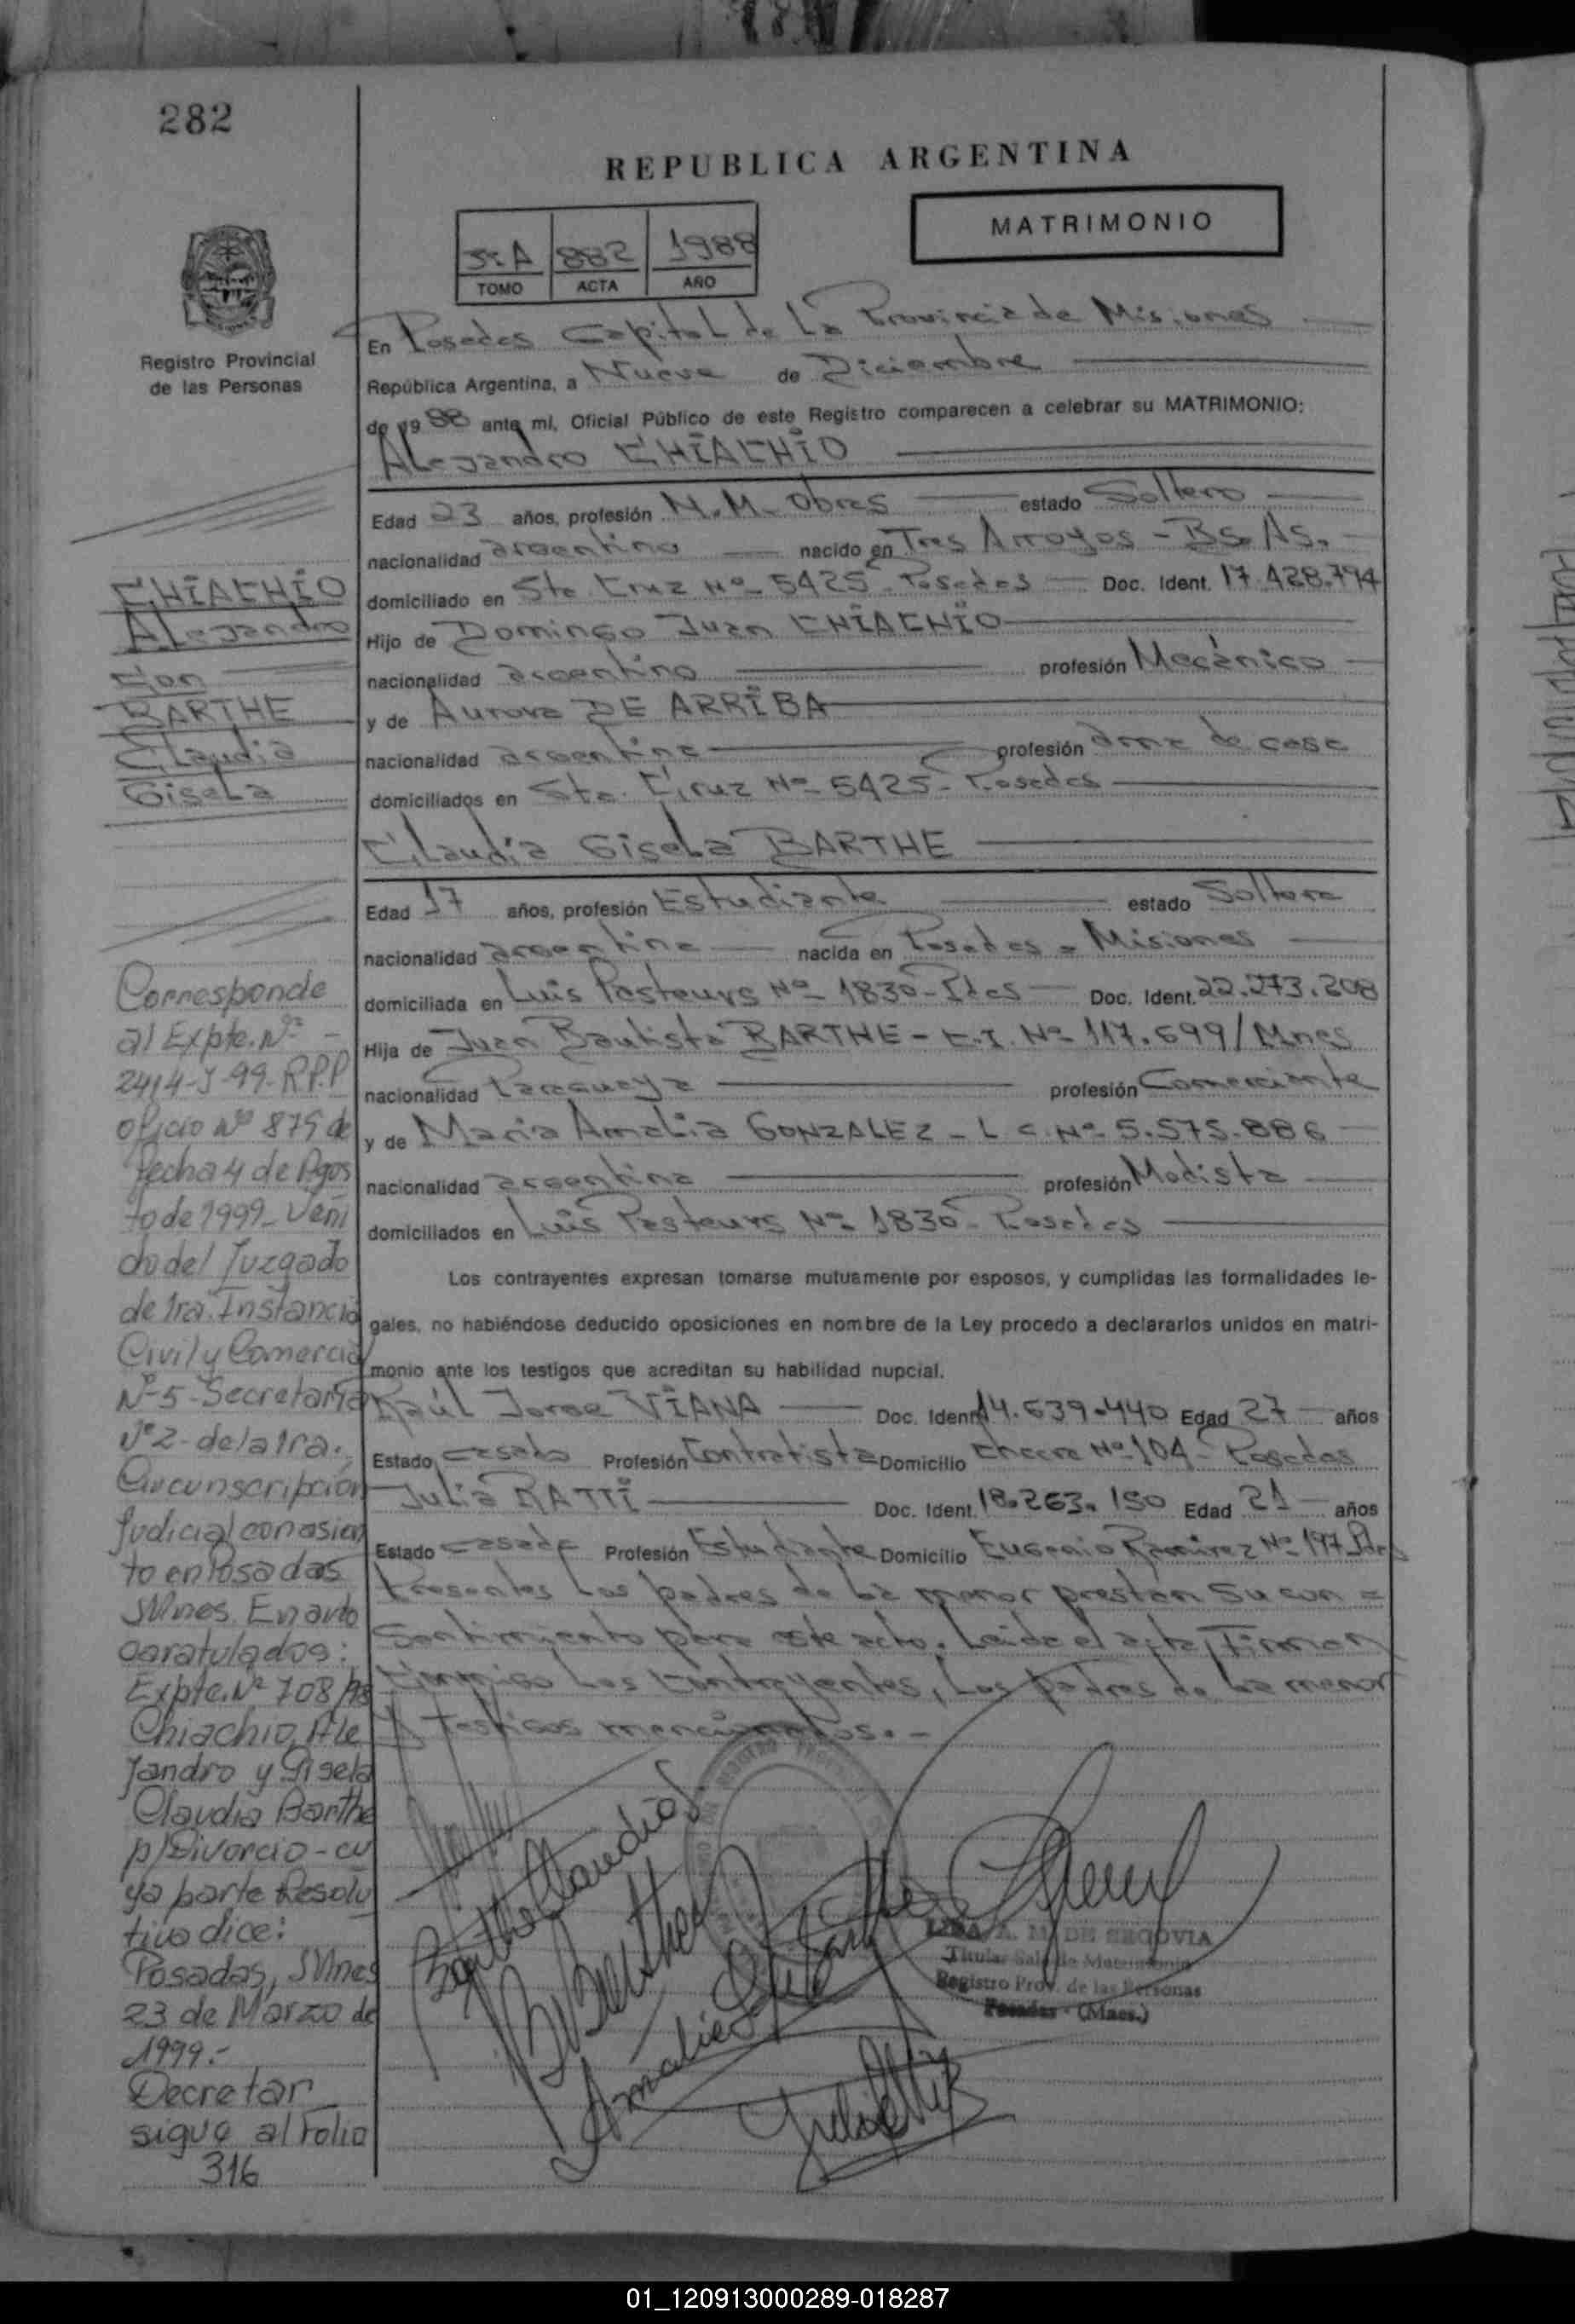 282
REPUBLICA ARGENTINA
MATRIMONIO
882 1988
TOMO ACTA AÑO
Registro Provincial
de las Personas
En Posadas Capital de La Provincia de Misiones
República Argentina, a Nueve de Diciembre
de 1988 ante mí, Oficial Público de este Registro comparecen a celebrar su MATRIMONIO:
Alejandro CHIACHIO
Edad 23 años, profesión M.M. Obras estado Soltero
nacionalidad argentino nacido en Tres Arroyos - Bs. As.
domiciliado en Sta. Cruz Nº 5425 - Posadas Doc. Ident. 17.428.794
Hijo de Domingo Juan CHIACHIO
nacionalidad argentino profesión Mecánico
y de Aurora DE ARRIBA
nacionalidad argentina profesión ama de casa
domiciliados en Sta. Cruz Nº 5425 - Posadas
Claudia Gisela BARTHE
Edad 17 años, profesión Estudiante estado Soltera
nacionalidad argentina nacida en Posadas = Misiones
domiciliada en Luis Pasteurs Nº 1830 - Pdas Doc. Ident. 22.273.208
Hija de Juan Bautista BARTHE - C.I. Nº 117.699/Mnes
nacionalidad Paraguaya profesión Comerciante
y de Maria Amalia GONZALEZ - L.C. Nº 5.575.886
nacionalidad argentina profesión Modista
domiciliados en Luis Pasteurs Nº 1830 - Posadas
Los contrayentes expresan tomarse mutuamente por esposos, y cumplidas las formalidades le-
gales, no habiéndose deducido oposiciones en nombre de la Ley procedo a declararlos unidos en matri-
monio ante los testigos que acreditan su habilidad nupcial.
Raúl Jorge VIANA Doc. Ident. 14.639.440 Edad 27 años
Estado casado Profesión Contratista Domicilio Chacra Nº 104 - Posadas
Julia RATTI Doc. Ident. 18.263.150 Edad 21 años
Estado casada Profesión Estudiante Domicilio Eugenio Ramirez Nº 197 Pdas
Presentes Los padres de La menor prestan su con =
sentimiento para este acto. Leída el acta, Firman
Conmigo Los Contrayentes, Los padres de La menor
y Testigos mencionados.-
CHIACHIO
Alejandro
Con
BARTHE
Claudia
Gisela
Corresponde
al Expte. Nº -
2414-J-99-R.P.P
oficio Nº 875 de
fecha 4 de Agos
to de 1999- Veni
do del Juzgado
de 1ra. Instancia
Civil y Comercial
Nº 5 - Secretaria
Nº 2 - de la 1ra.
Circunscripción
Judicial con asien
to en Posadas
Mnes. En auto
caratulados:
Expte. Nº 708/98
Chiachio, Ale
jandro y Gisela
Claudia Barthe
p/Divorcio - cu
ya parte Resolu
tiva dice:
Posadas, Mnes
23 de Marzo de
1999.-
Decretar
sigue al Folio
316
Barthe Claudia
A. M. DE SEGOVIA
Titular Sala de Matrimonio
Registro Prov. de las Personas
Posadas - (Mnes.)
01_120913000289-018287